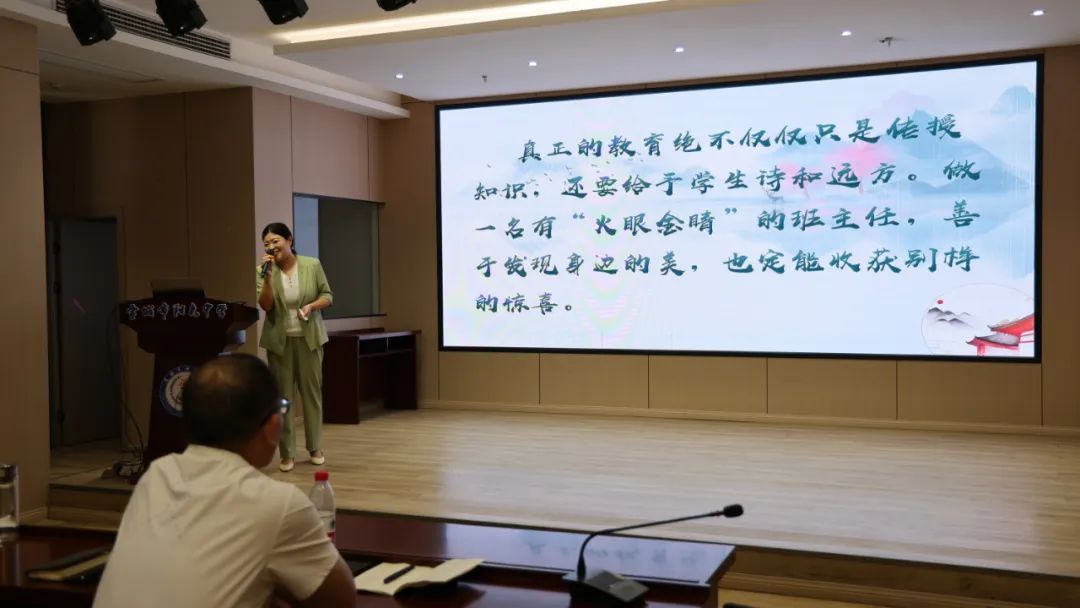 真正的教育绝不仅仅只是传授
知识，还要给于学生诗和远方。做
一名有“火眼金睛”的班主任，善
于发现身边的美，也定能收获别样
的惊喜。